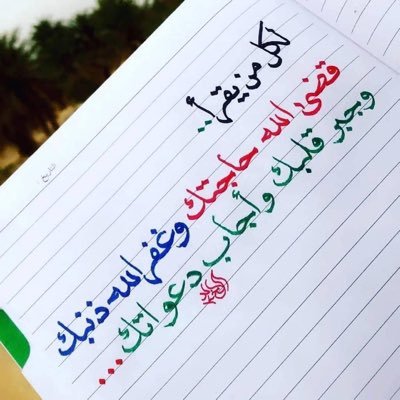 لكل من يقرأ..
قضى الله حاجتك وغفر الله ذنبك
وجبر قلبك وأجاب دعواتك...
التاريخ :